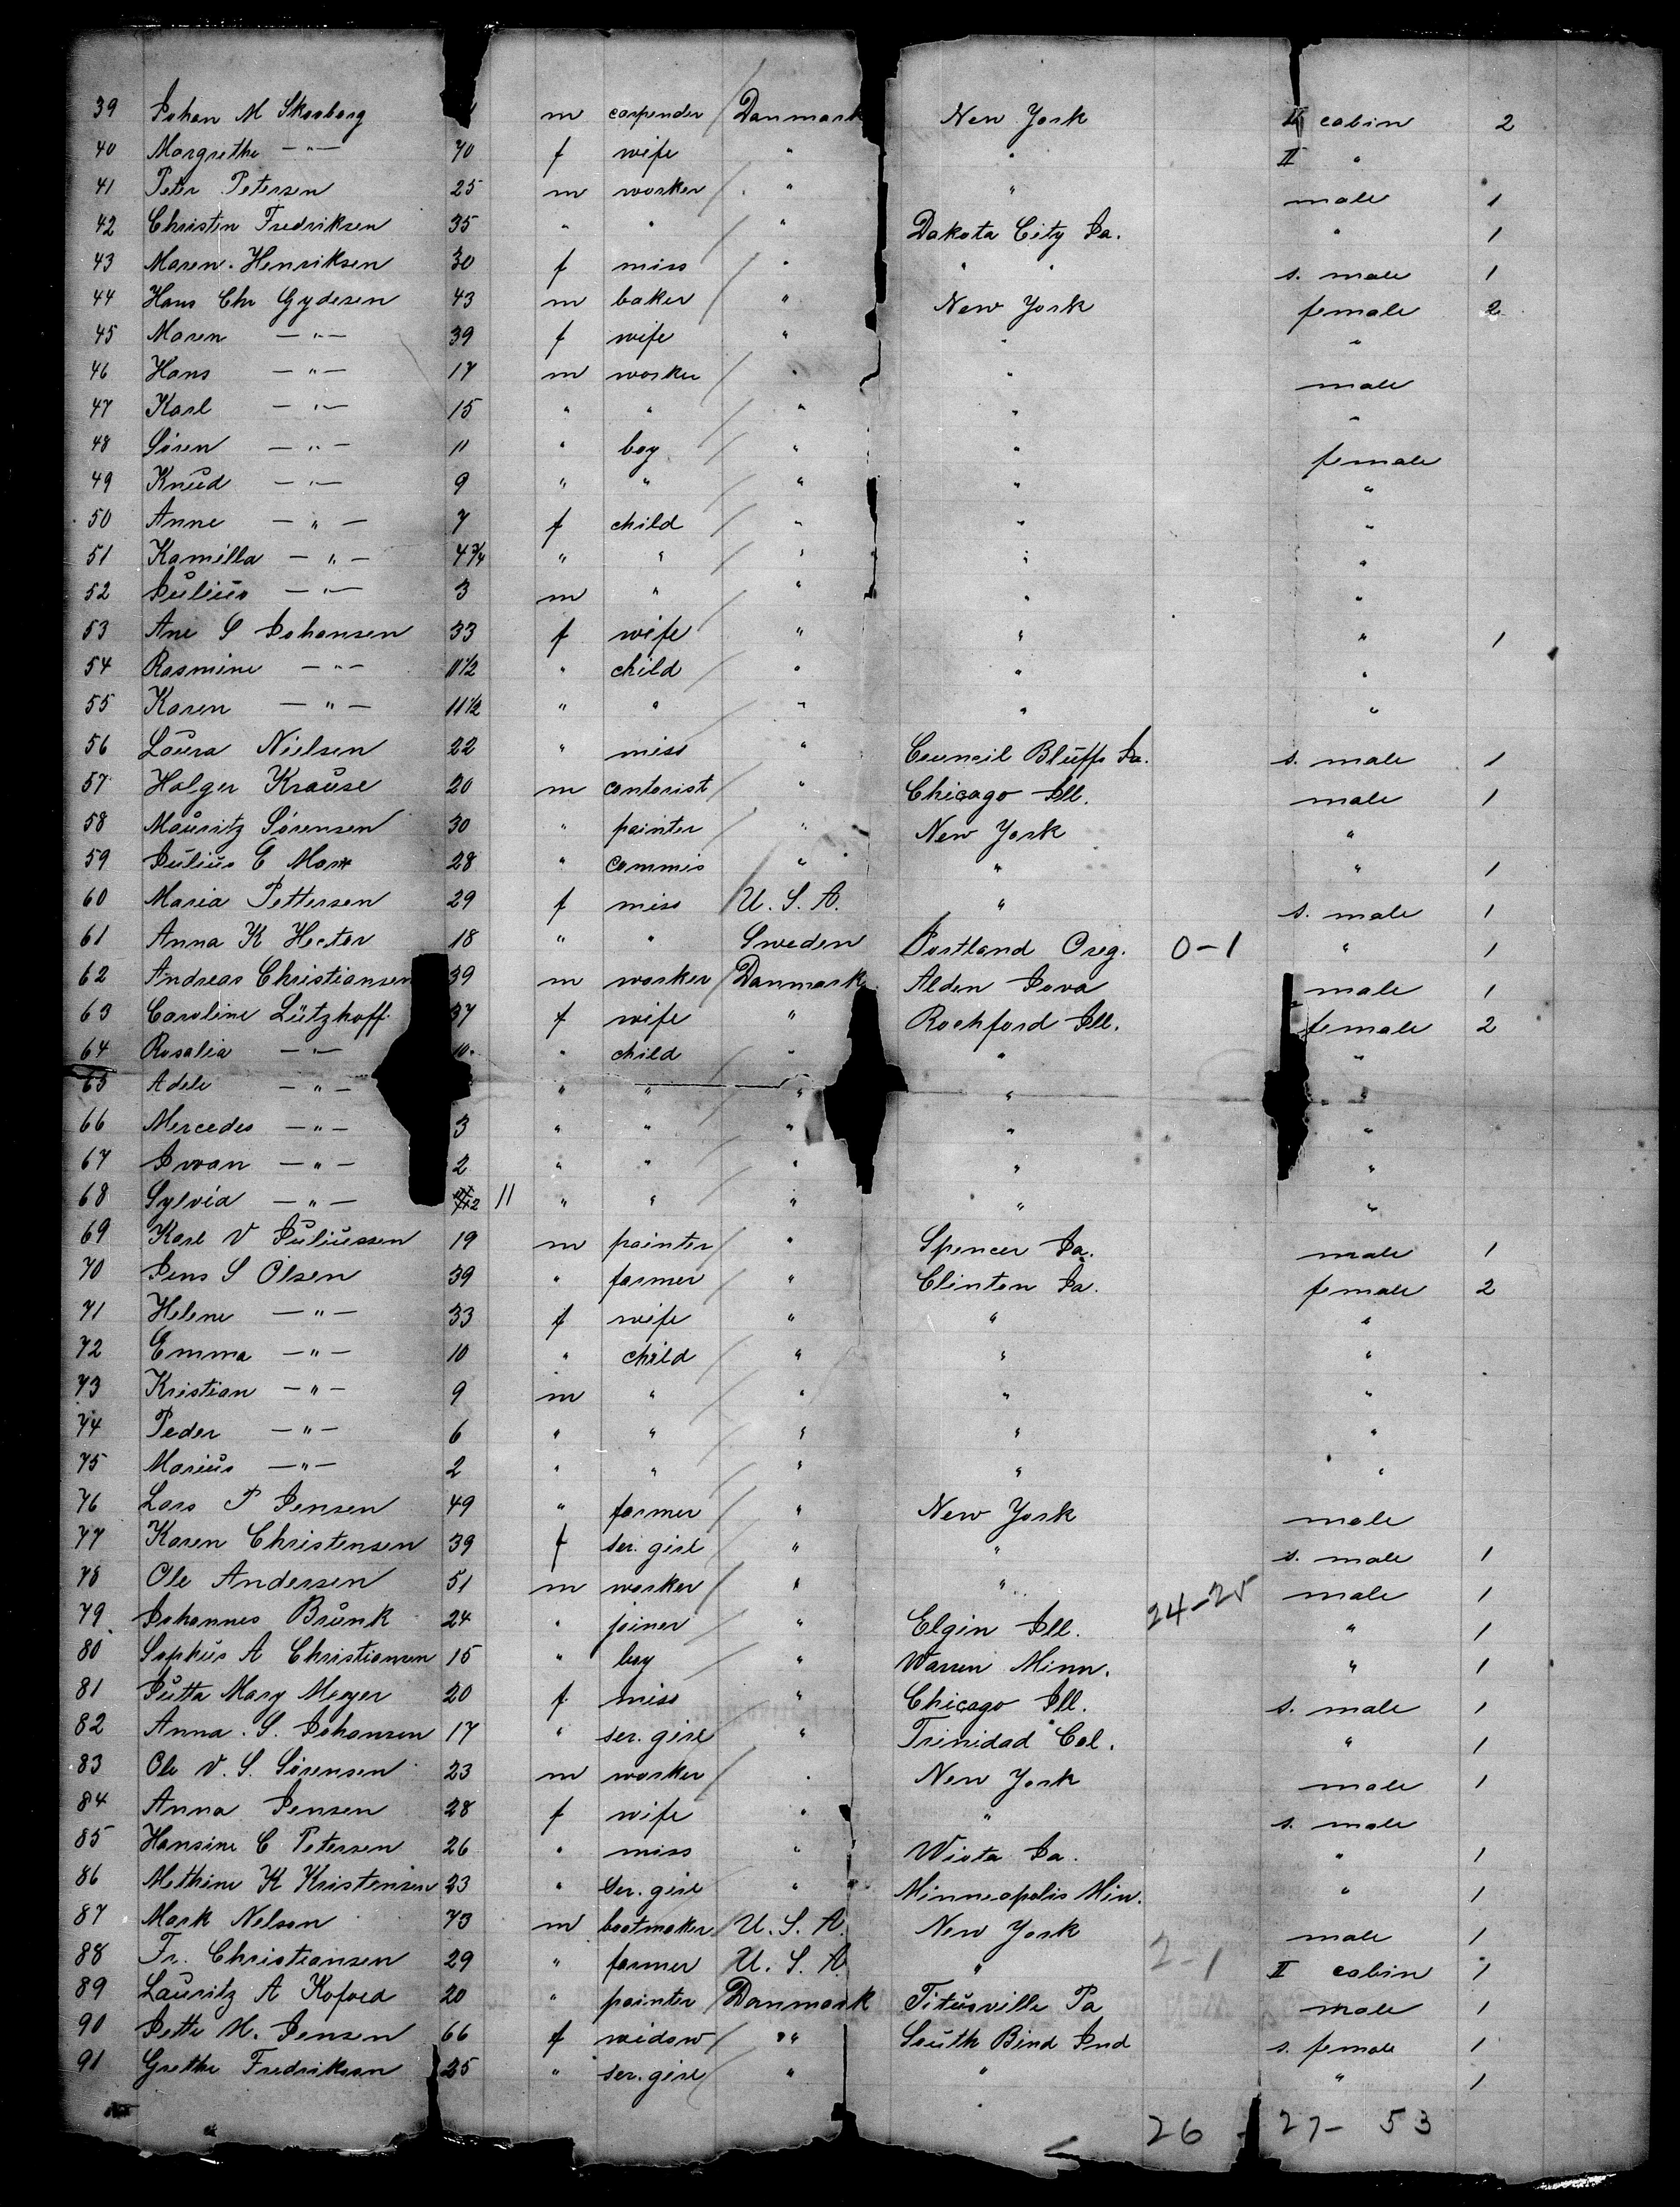 39 Johan M Skovborg m carpender Danmark New York II cabin 2
40 Margrethe —"— 70 f wife " " II "
41 Peter Petersen 25 m worker " " male 1
42 Christin Fredriksen 35 " " " Dakota City Ia. " 1
43 Maren Henriksen 30 f miss " " " s. male 1
44 Hans Chr Gydesen 43 m baker " New York female 2
45 Maren —"— 39 f wife " " "
46 Hans —"— 17 m worker " " male
47 Karl —"— 15 " " " " "
48 Søren —"— 11 " boy " " female
49 Knud —"— 9 " " " " "
50 Anne —"— 7 f child " " "
51 Kamilla —"— 4 3/4 " " " " "
52 Julius —"— 3 m " " " "
53 Ane S Johansen 33 f wife " " " 1
54 Rasmine —"— 11 1/2 " child " " "
55 Karen —"— 11 1/2 " " " " "
56 Laura Nielsen 22 " miss " Council Bluffs Ia. s. male 1
57 Holger Krause 20 m contorist " Chicago Ill. male 1
58 Mauritz Sørensen 30 " painter " New York "
59 Julius E Marx 28 " commis " " " 1
60 Maria Pettersen 29 f miss U.S.A. " s. male 1
61 Anna K Hector 18 " " Sweden Portland Oreg. 0-1 " 1
62 Andreas Christiansen 39 m worker Danmark Alden Iova male 1
63 Caroline Lützhoff 37 f wife " Rockford Ill. female 2
64 Rosalia —"— 10 " child " " "
65 Adele —"— " " " " "
66 Mercedes —"— 3 " " " " "
67 Iwan —"— 2 " " " " "
68 Sylvia —"— 11 " " " " "
69 Karl V Juliussen 19 m painter " Spencer Ia. male 1
70 Jens S Olsen 39 " farmer " Clinton Ia. female 2
71 Helene —"— 33 f wife " " "
72 Emma —"— 10 " child " " "
73 Kristian —"— 9 m " " " "
74 Peder —"— 6 " " " " "
75 Marius —"— 2 " " " " "
76 Lars P Jensen 49 " farmer " New York male
77 Karen Christensen 39 f ser. girl " " s. male 1
78 Ole Andersen 51 m worker " " male 1
79 Johannes Brunk 24 " joiner " Elgin Ill. 24-25 " 1
80 Sophus A Christiansen 15 " boy " Warren Minn. " 1
81 Jutta Mary Meyer 20 f miss " Chicago Ill. s. male 1
82 Anna S. Johansen 17 " ser. girl " Trinidad Col. " 1
83 Ole V. S. Sørensen 23 m worker " New York male 1
84 Anna Jensen 28 f wife " " s. male
85 Hansine C Petersen 26 " miss " Wiota Ia. " 1
86 Methine K Kristensen 23 " ser. girl " Minneapolis Min. " 1
87 Mark Nelson 73 m bootmaker U.S.A. New York male 1
88 Fr. Christiansen 29 " farmer U.S.A. " 2-1 II cabin 1
89 Lauritz A Kofoed 20 " painter Danmark Titusville Pa male 1
90 Jette M. Jensen 66 f widow " South Bind Ind s. female 1
91 Grethe Fredriksen 25 " ser. girl " " " 1
26 - 27 - 53